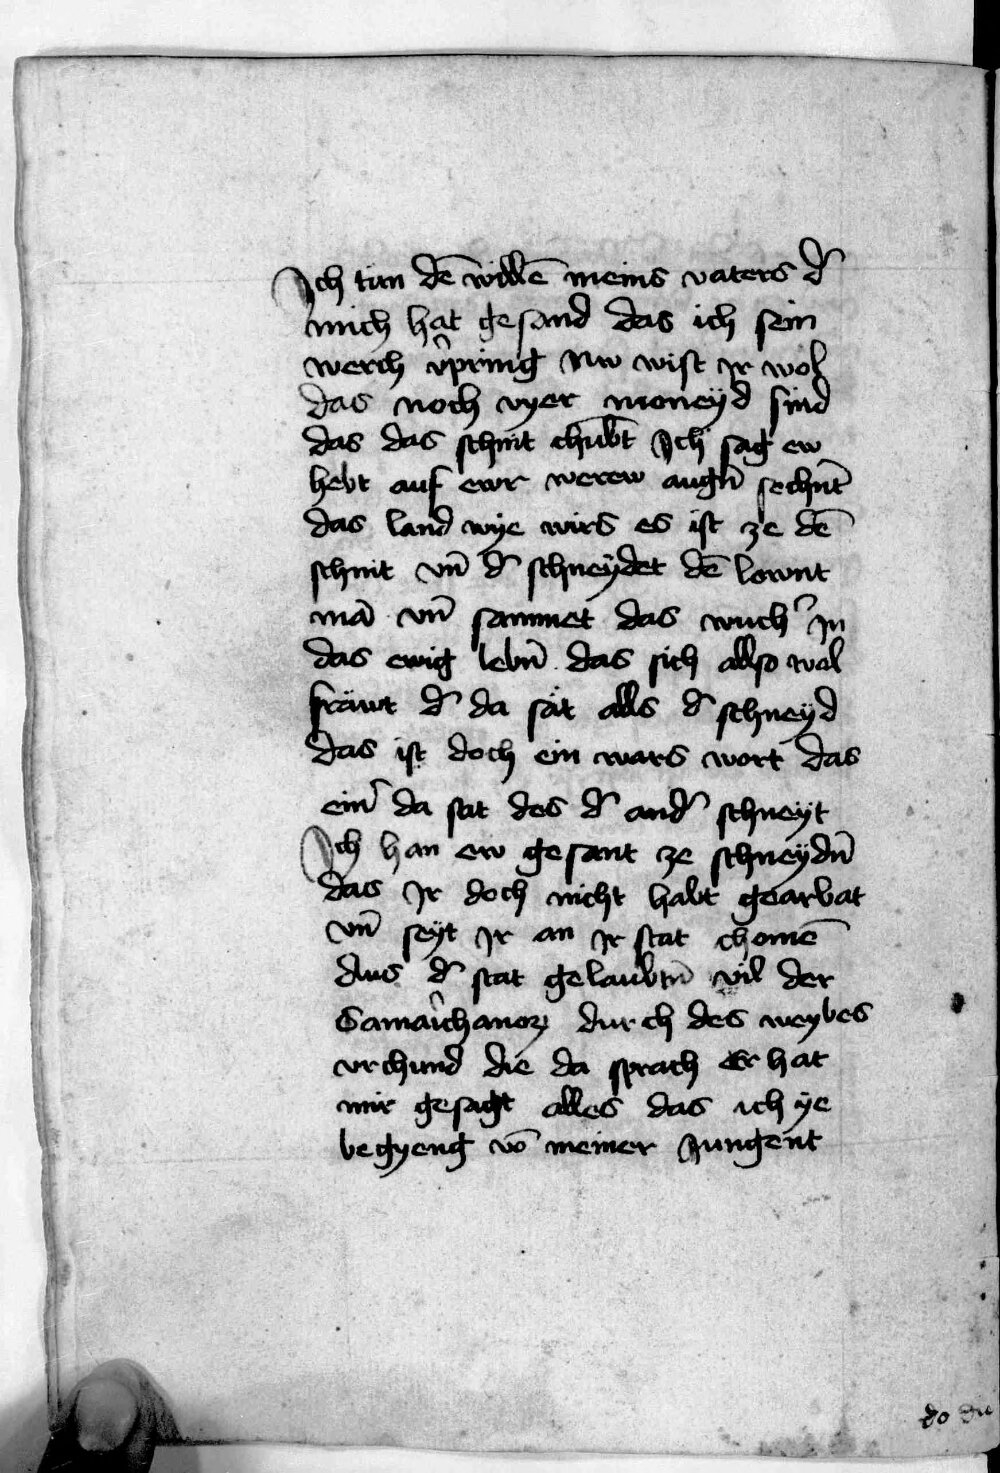 Ich tün dē willē meins vaters d͛
mich hat gesand das ich sein
werch v͛pring Nw wist ir wol
das noch vyer moneyd sind
das das schnit chūbt Ich sag ew
hebt auf ewr werew augn̄ sechn̄t
das land wye wirs es ist ze dē
schnit vn̄ d͛ schneydet dē lownt
mā vn̄ sammet das wuch͛ In
das ewig lebn̄ das sich allso wal
fräwt d͛ da sät alls d͛ schneyd
das ist doch ein wars wort das
ein͛ da sat des d͛ and͛ schneyt
Ich han ew gesant ze schneydn̄
das Ir doch nicht habt gearbat
vn̄ seyt Ir an Ir stat chomē
Aus d͛ stat gelaubtn̄ vil der
Samaı͛chanorꝫ durch des weybes
vrchund die da sprach Er hat
mir gesagt alles das ich ÿe
begyeng vō meiner Jungent
do die